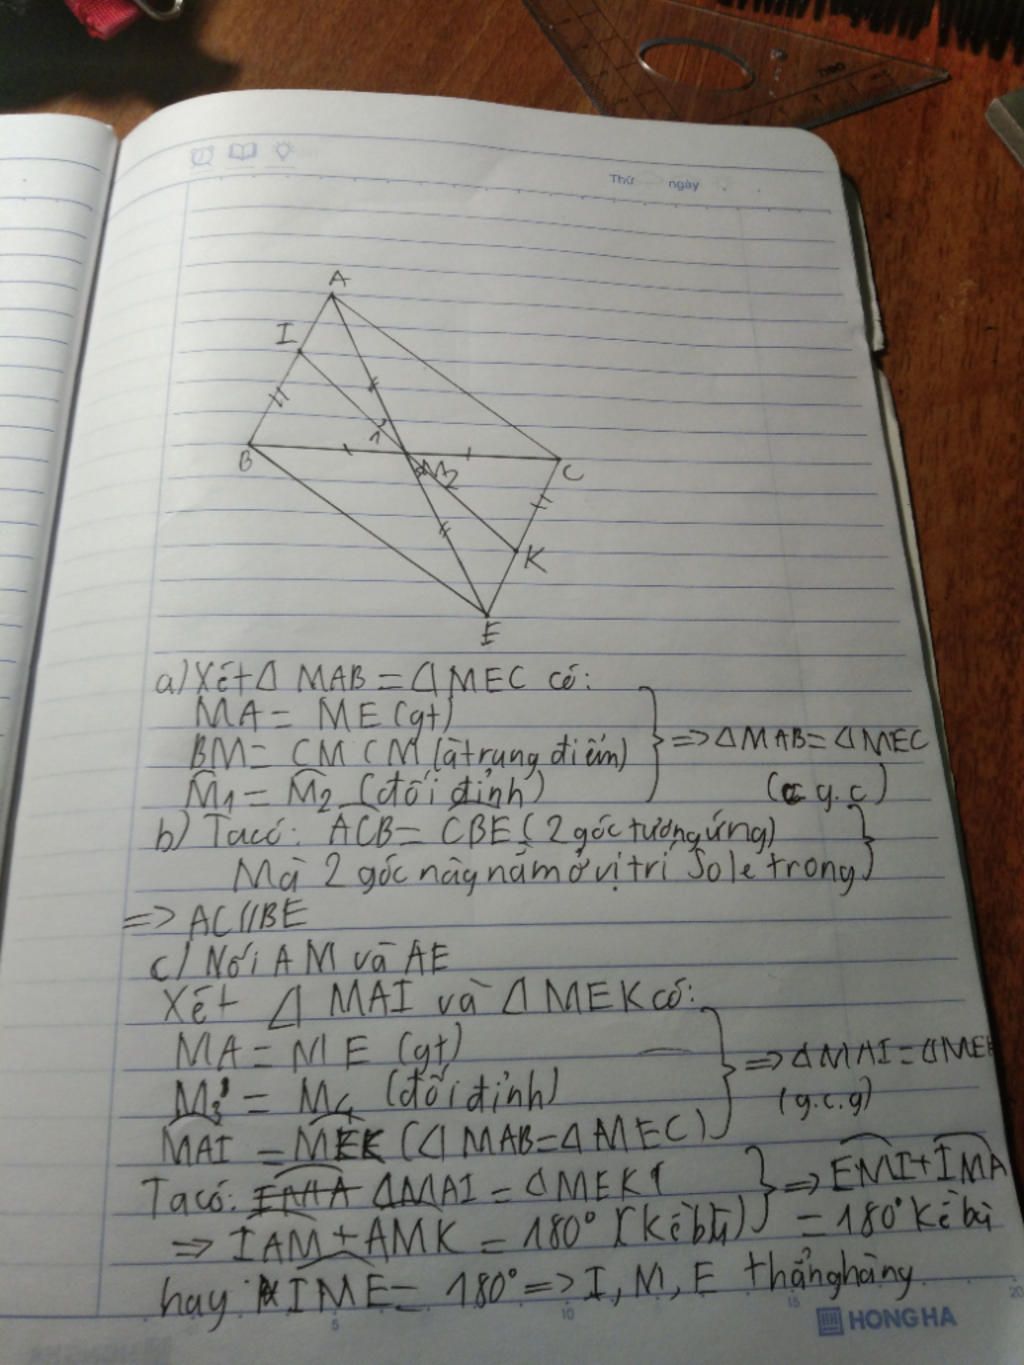 Thứ ngày
A
I
1
B
M2
C
K
E
a) Xét Δ MAB = Δ MEC có:
MA = ME (gt)
BM = CM CM (là trung điểm)
M1 = M2 (đối đỉnh)
=> Δ MAB = Δ MEC
(c g.c)
b) Ta có: ACB = CBE (2 góc tương ứng)
Mà 2 góc này nằm ở vị trí Sole trong
=> AC//BE
c) Nối AM và AE
Xét Δ MAI và Δ MEK có:
MA = ME (gt)
M3 = M4 (đối đỉnh)
MAI = MEK (Δ MAB = Δ MEC)
=> Δ MAI = Δ MEK
(g.c.g)
Ta có: Δ MAI = Δ MEK
=> IAM + AMK = 180° (Kề bù)
=> EMI + IMA
= 180° Kề bù
hay IME = 180° => I, M, E thẳng hàng
5 10 15 20
HONG HA